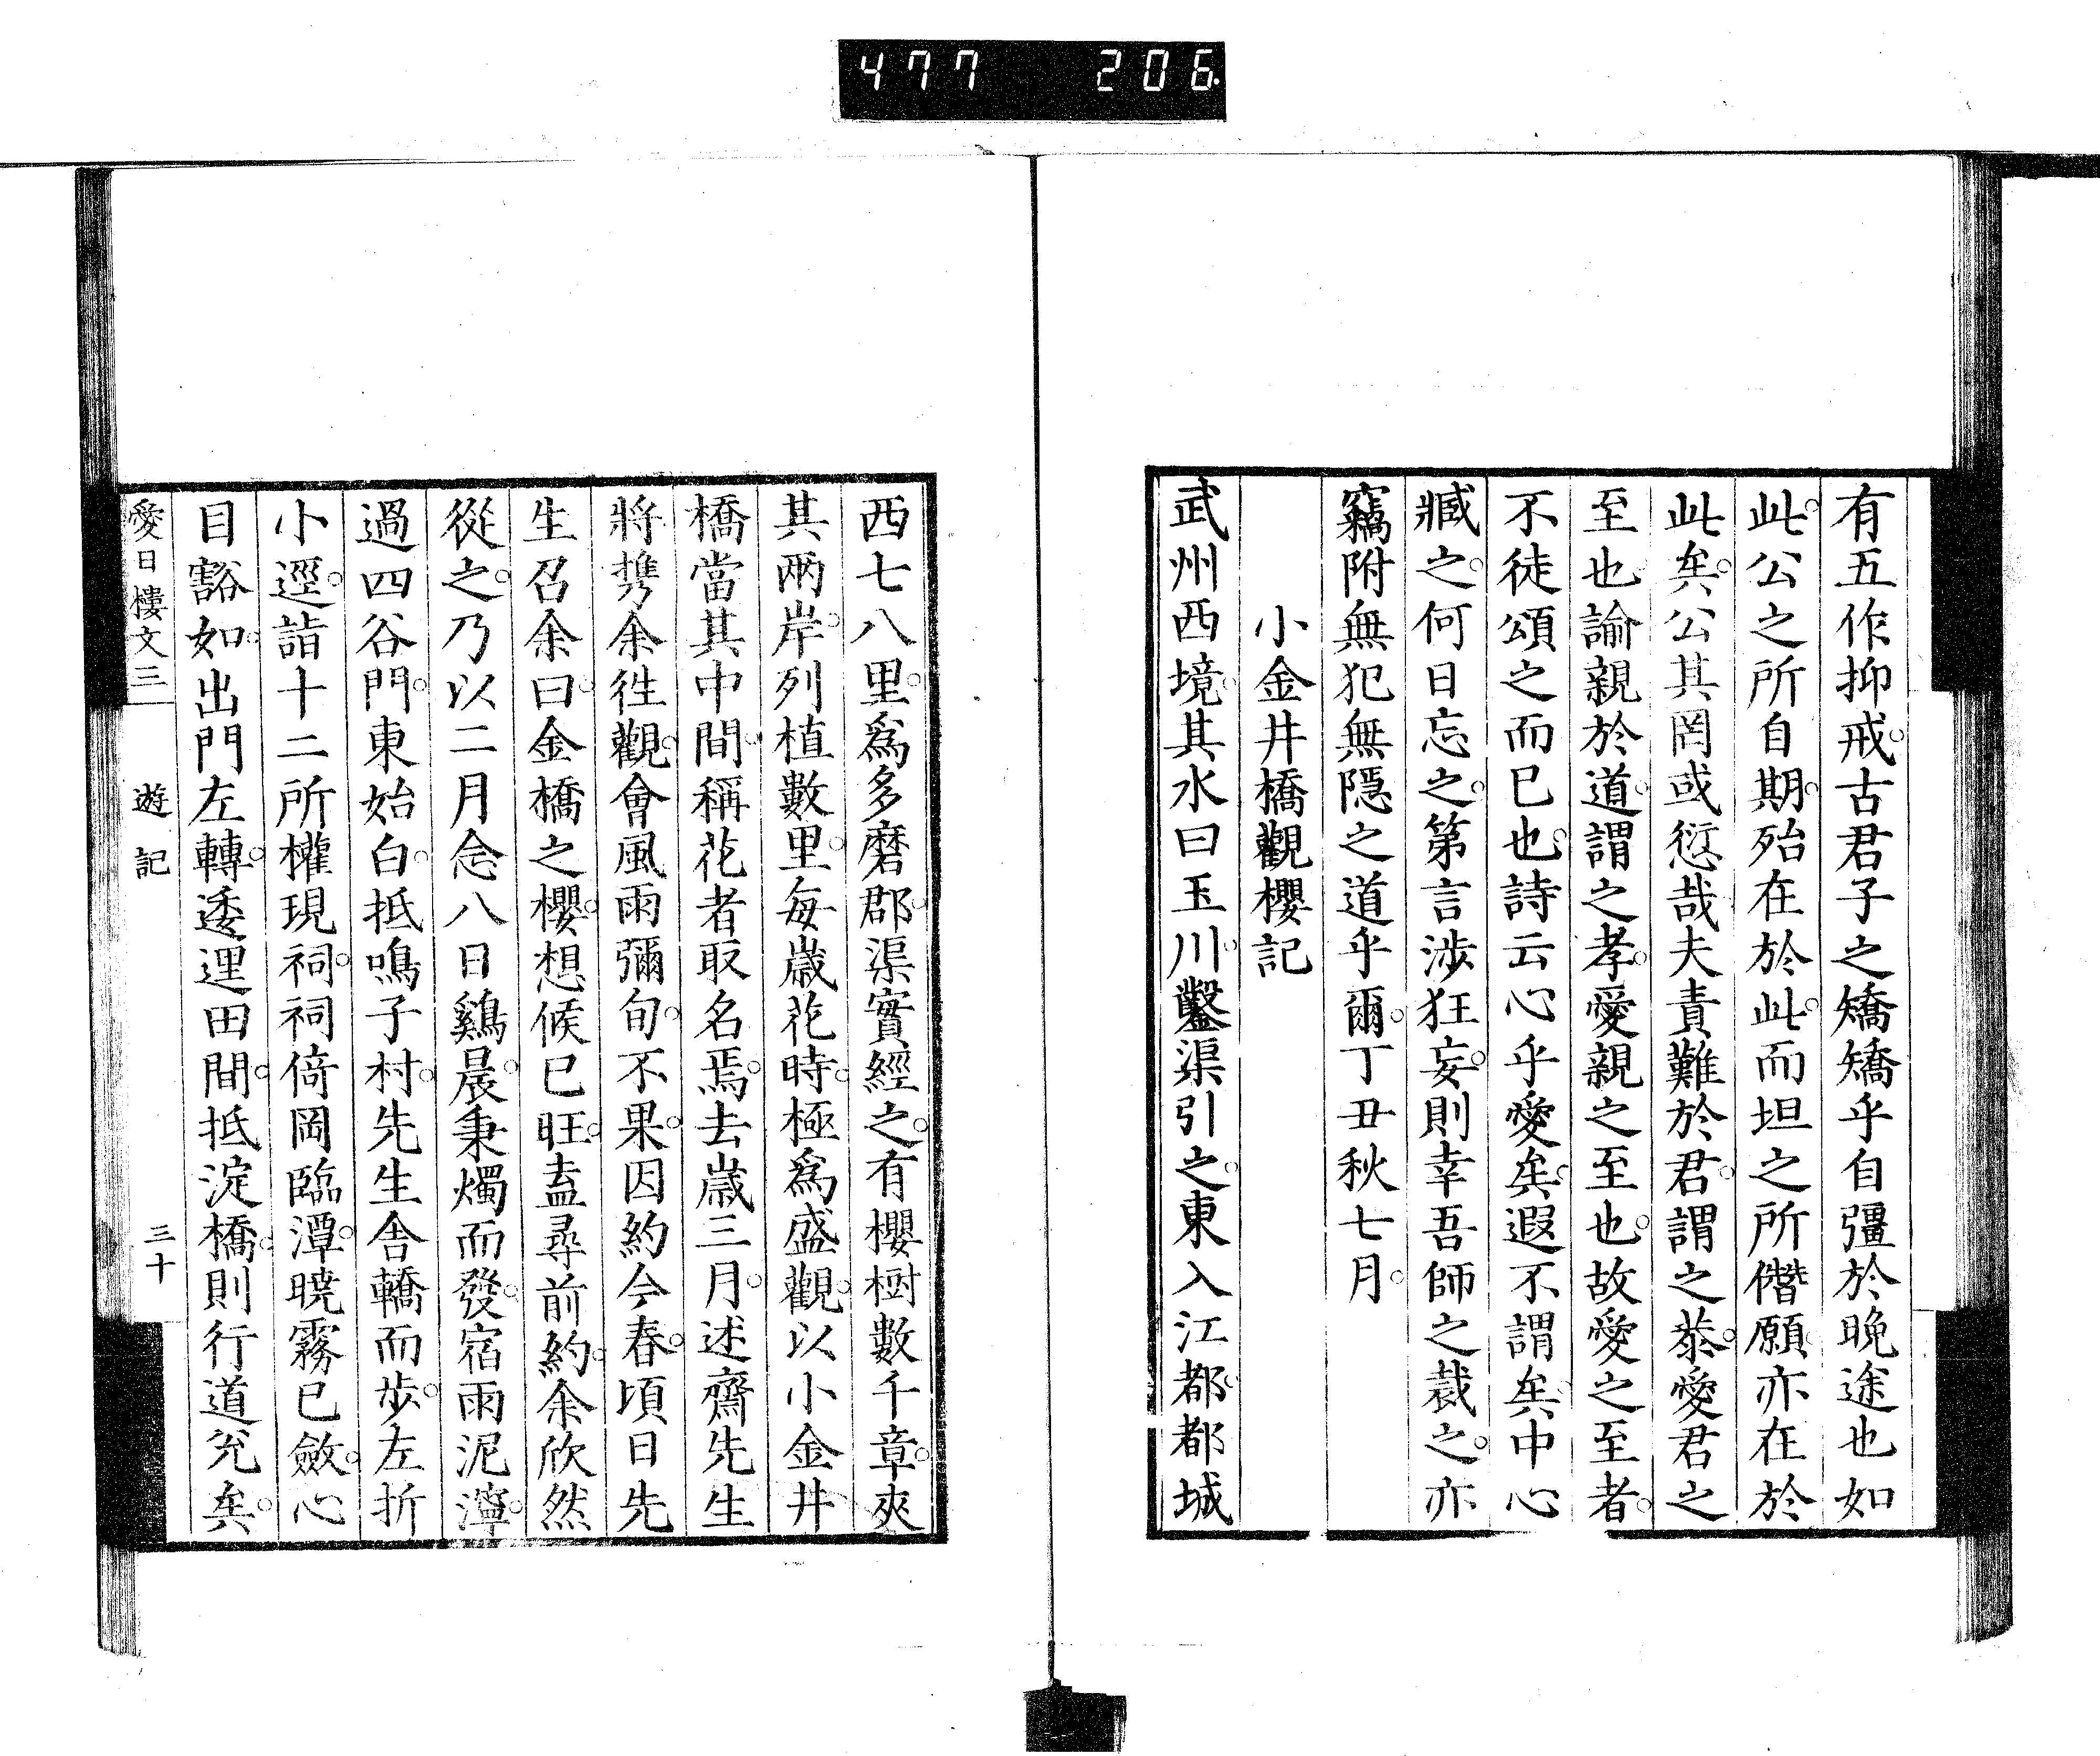 477 206
有五作抑戒。古君子之矯矯乎自彊於晚途也如
此。公之所自期。殆在於此。而坦之所僭願。亦在於
此矣。公其罔或愆哉夫責難於君。謂之恭。愛君之
至也諭親於道。謂之孝。愛親之至也。故愛之至者。
不徒頌之而已也。詩云心乎愛矣。遐不謂矣。中心
臧之。何日忘之。第言涉狂妄。則幸吾師之裁之。亦
竊附無犯無隱之道乎爾。丁丑秋七月。
小金井橋觀櫻記
武州西境。其水曰玉川。鑿渠引之。東入江都。都城
西七八里。爲多磨郡。渠實經之。有櫻樹數千章。夾
其兩岸。列植數里。每歲花時。極爲盛觀。以小金井
橋當其中間。稱花者取名焉。去歲三月。述齋先生
將携余徃觀。會風雨彌旬。不果。因約今春。頃日先
生召余曰。金橋之櫻。想候已旺。盍尋前約。余欣然
從之。乃以二月念八日雞晨。秉燭而發。宿雨泥濘。
過四谷門。東始白。抵鳴子村。先生舍轎而步。左折
小逕。詣十二所權現祠。祠倚岡臨潭。曉霧已斂。心
目豁如。出門左轉。逶迤田間。抵淀橋。則行道兌矣。
愛日樓文三 遊記 三十